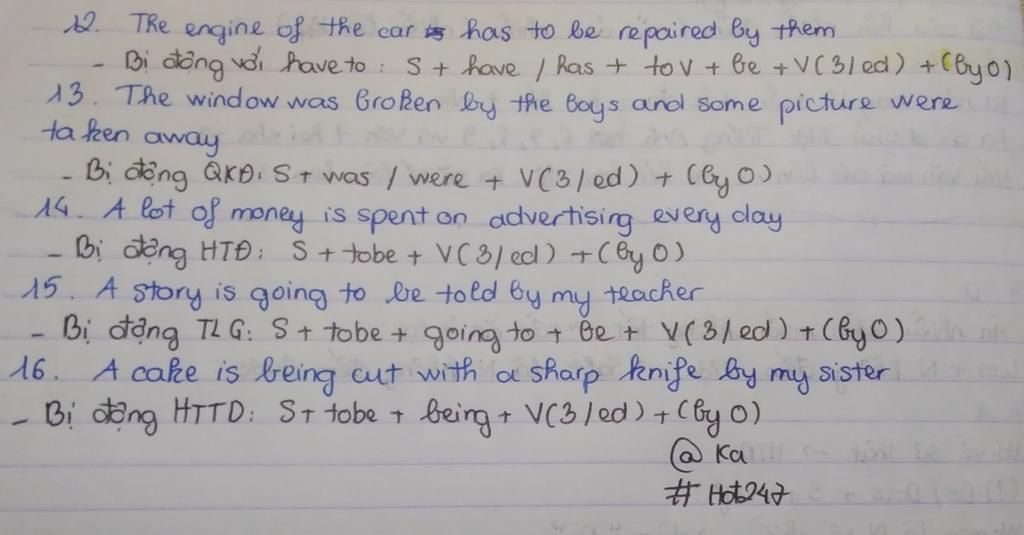 12. The engine of the car has to be repaired by them
- Bị động với have to: S + have / has + to V + be + V(3/ed) + (by O)
13. The window was broken by the boys and some picture were
taken away
- Bị động QKĐ: S + was / were + V(3/ed) + (by O)
14. A lot of money is spent on advertising every day
- Bị động HTĐ: S + tobe + V(3/ed) + (by O)
15. A story is going to be told by my teacher
- Bị động TLG: S + tobe + going to + be + V(3/ed) + (by O)
16. A cake is being cut with a sharp knife by my sister
- Bị động HTTD: S + tobe + being + V(3/ed) + (by O)
@ Ka
# Hot247